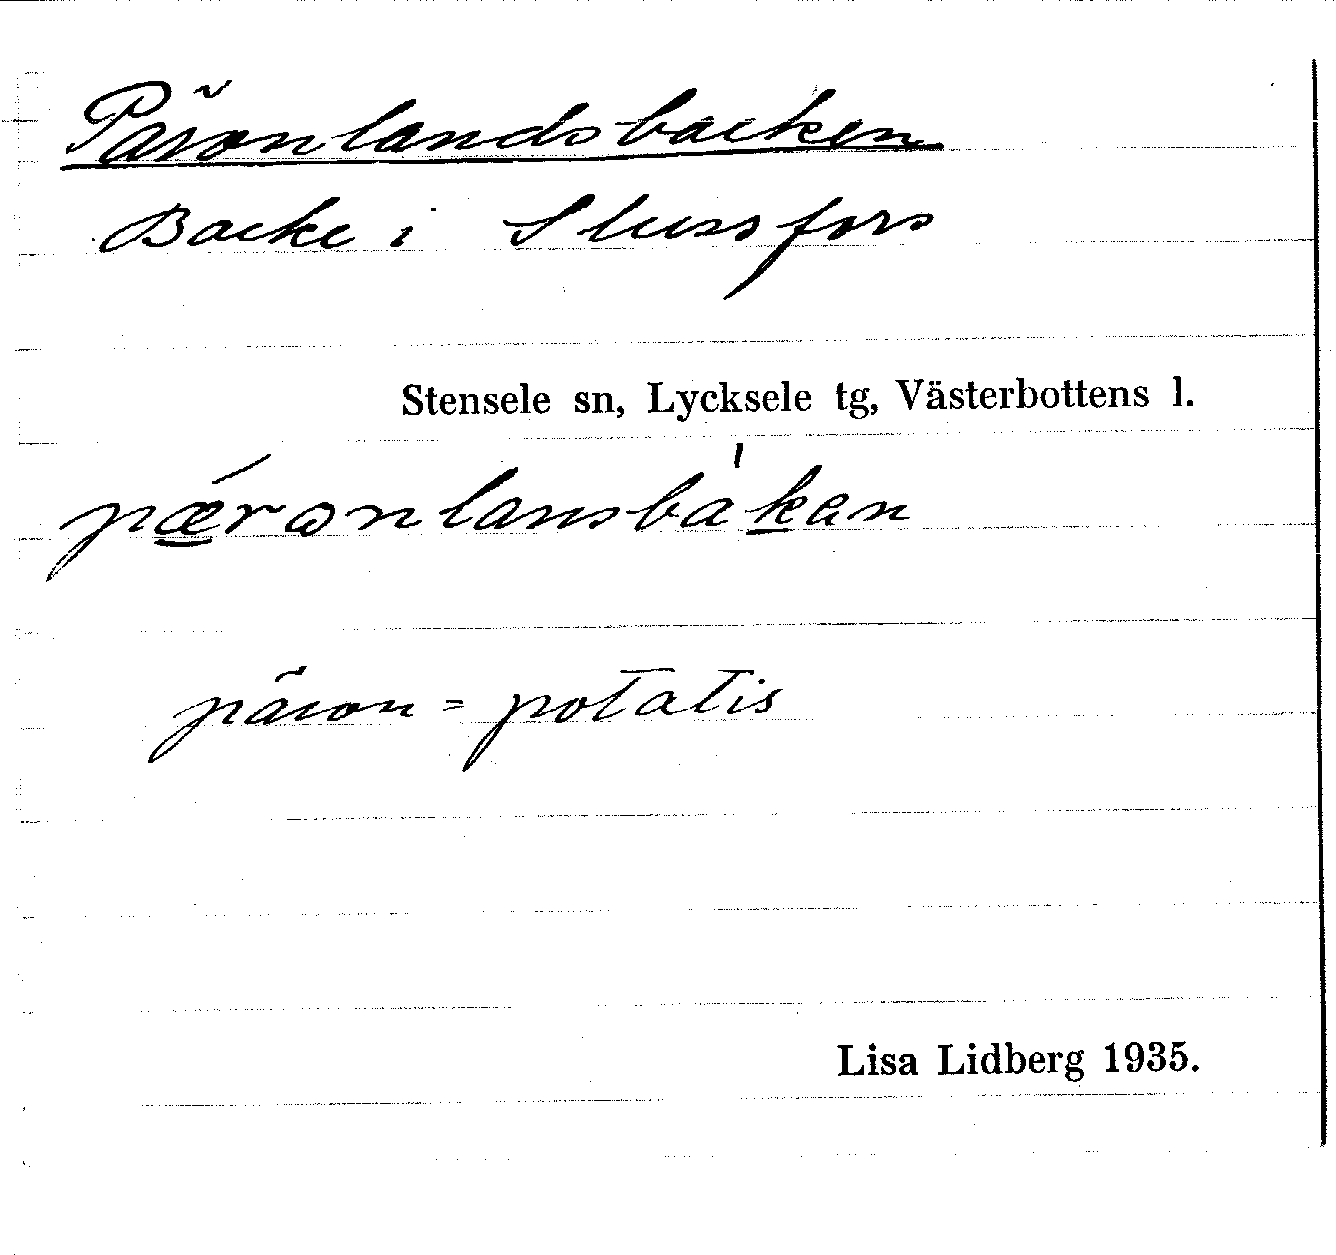 Päronlandsbacken
Backe i Slussfors
Stensele sn, Lycksele tg, Västerbottens l.
pǽronlansbàkan
päron = potatis
Lisa Lidberg 1935.